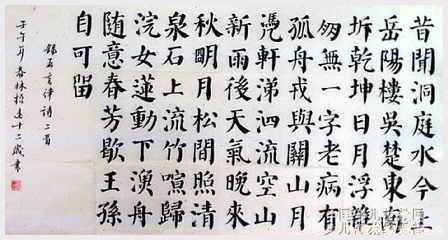 昔聞洞庭水今上
岳陽樓吳楚東南
坼乾坤日月浮親
無一字老病有
孤舟戎與關山月
凴軒涕泗流空山
新雨後天氣晚來
秋明月松間照清
泉石上流竹喧歸
浣女蓮動下漁舟
隨意春芳歇王孫
自可留
錄五言律詩二首
壬午年春林於十二歲書